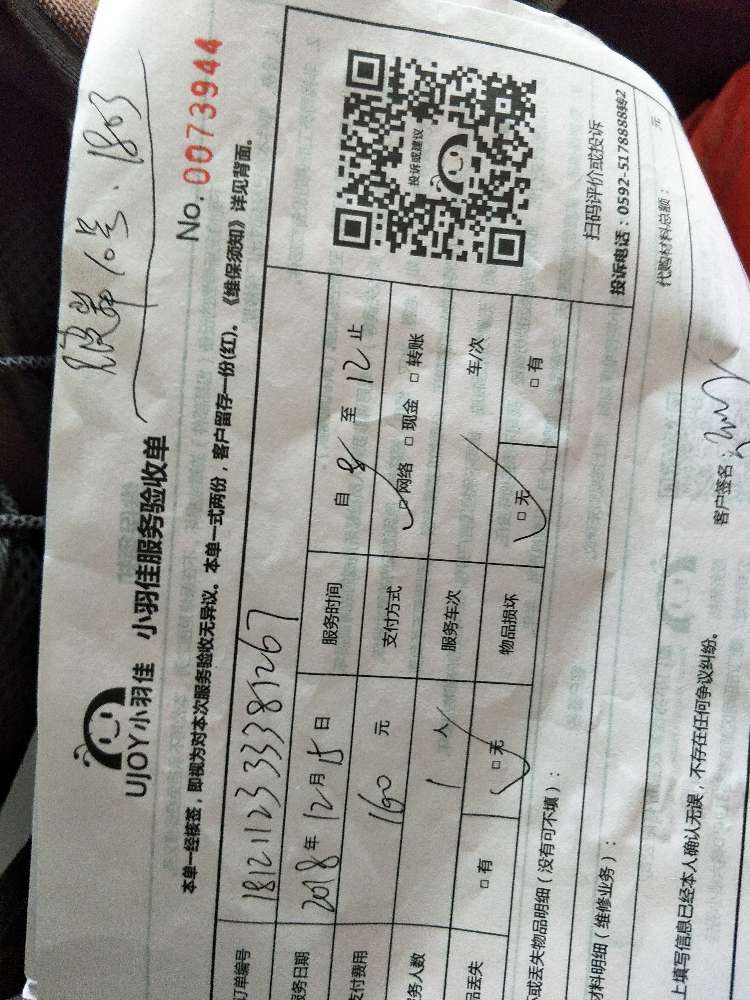 10号.1803
No.0073944
UJOY小羽佳 小羽佳服务验收单
本单一经核签，即视为对本次服务验收无异议。本单一式两份，客户留存一份(红)。《维保须知》详见背面。
订单编号 1812112333381267
务日期 2018年12月15日 服务时间 自8至12止
支付费用 160元 支付方式 □网络 □现金 □转账
务人数 1人 服务车次 / 车/次
品丢失 □有 □无 物品损坏 □无 □有
投诉或建议
扫码评价或投诉
投诉电话：0592-5178888转2
或丢失物品明细（没有可不填）：
材料明细（维修业务）： 代购材料总额： 元
上填写信息已经本人确认无误，不存在任何争议纠纷。 客户签名：